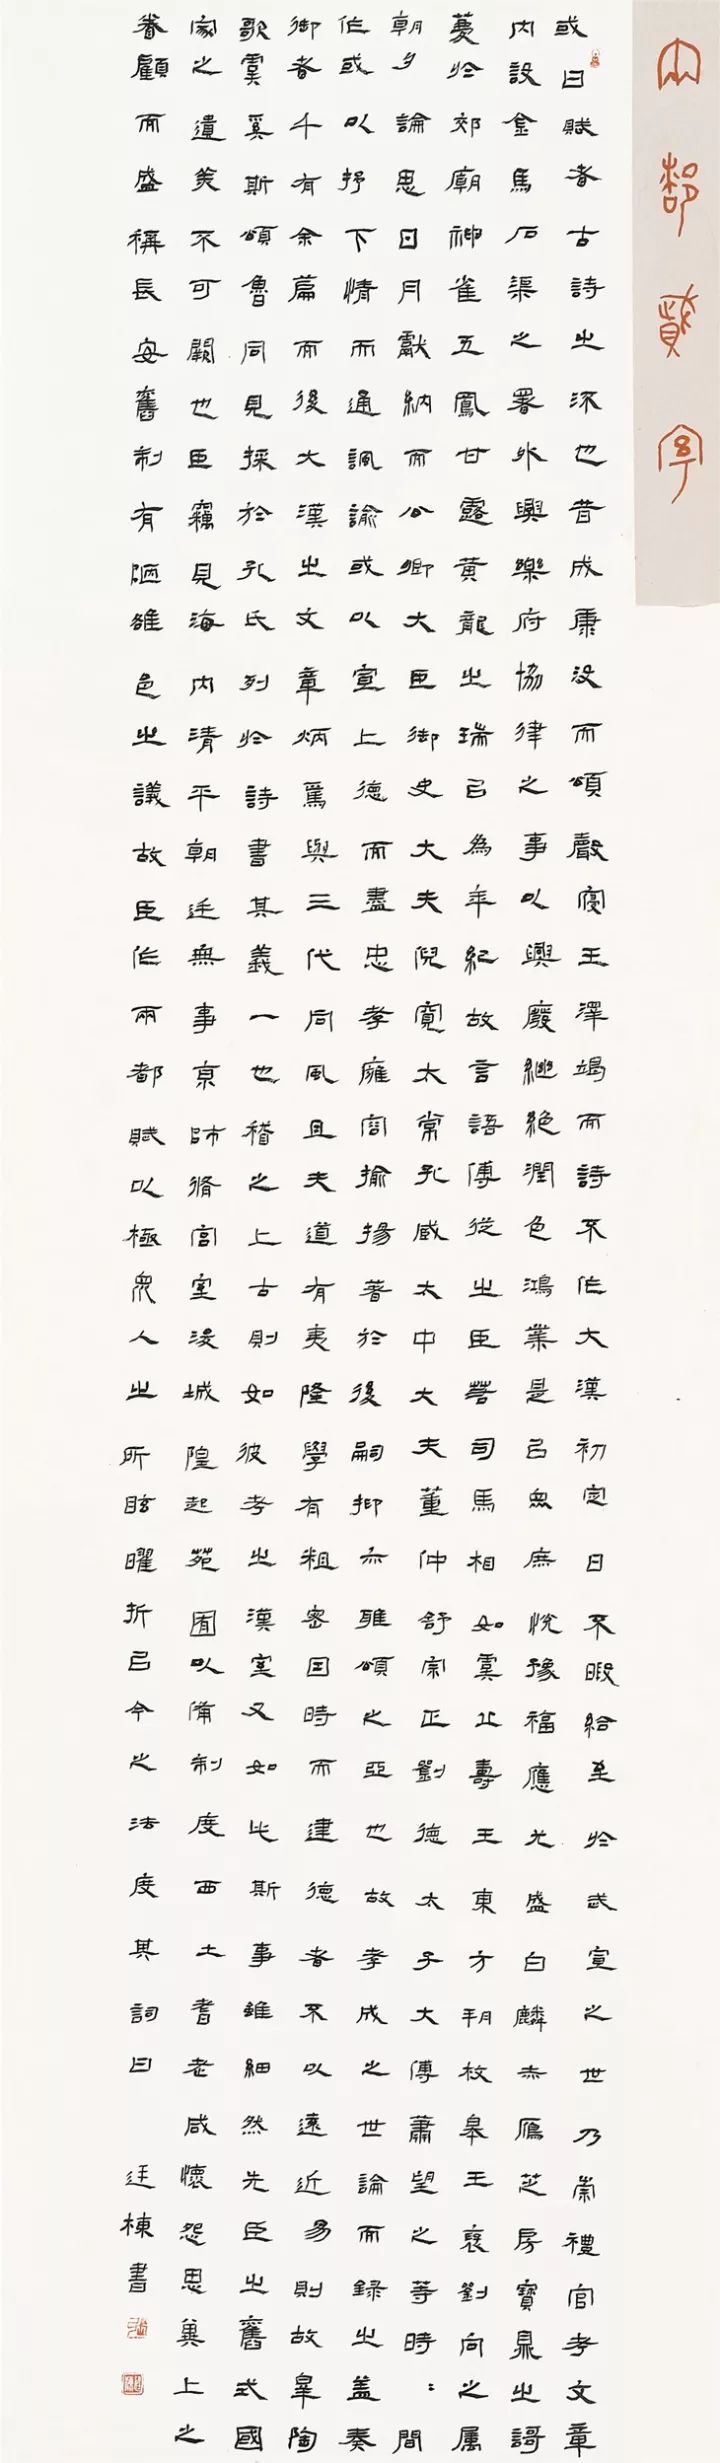 兩都賦序
或曰賦者古詩之流也昔成康沒而頌聲寢王澤竭而詩不作大漢初定日不暇給至於武宣之世乃崇禮官考文章
內設金馬石渠之署外興樂府協律之事以興廢繼絕潤色鴻業是以眾庶悅豫福應尤盛白麟赤鴈芝房寶鼎之謌
薦於郊廟神雀五鳳甘露黃龍之瑞以為年紀故言語侍從之臣若司馬相如虞丘壽王東方朔枚皋王褒劉向之属
朝夕論思日月獻納而公卿大臣御史大夫倪寬太常孔臧太中大夫董仲舒宗正劉德太子大傅蕭望之等時〻間
作或以抒下情而通諷諭或以宣上德而盡忠孝雍容揄揚著於後嗣抑亦雅頌之亞也故孝成之世論而録之蓋奏
御者千有余篇而後大漢之文章炳焉與三代同風且夫道有夷隆學有粗密因時而建德者不以遠近易則故皐陶
歌虞奚斯頌魯同見採於孔氏列於詩書其義一也稽之上古則如彼考之漢室又如此斯事雖細然先臣之舊式國
家之遺美不可闕也臣竊見海內清平朝廷無事京師脩宮室浚城隍起苑囿以備制度西土耆老咸懷怨思冀上之
眷顧而盛稱長安舊制有陋雒邑之議故臣作兩都賦以極眾人之所眩曜折以今之法度其詞曰
廷棟書